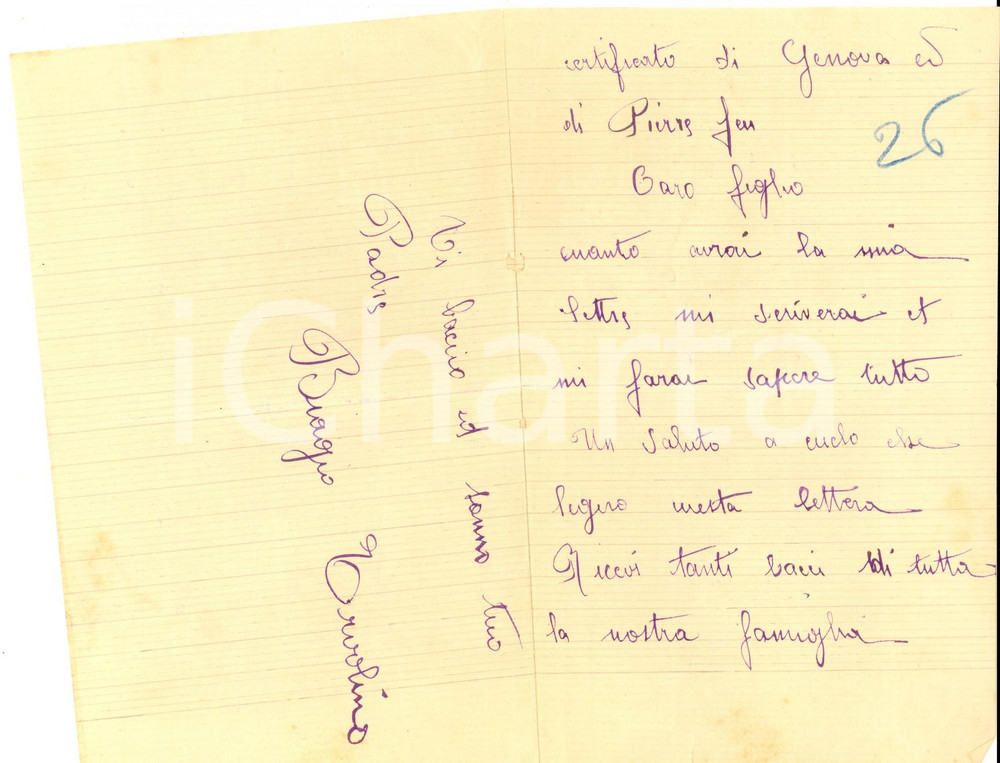 certificato di Genova ed
di Pierre feu
26
Caro figlio
cuanto avrai la mia
lettre mi scriverai et
mi farai sapere tutto
Un saluto a cuelo che
legero uesta lettera
Riccvi tanti baci di tutta
la nostra famiglia
Ti baccio ed sonno tuo
Padre
Biagio Ervolino
iCharta